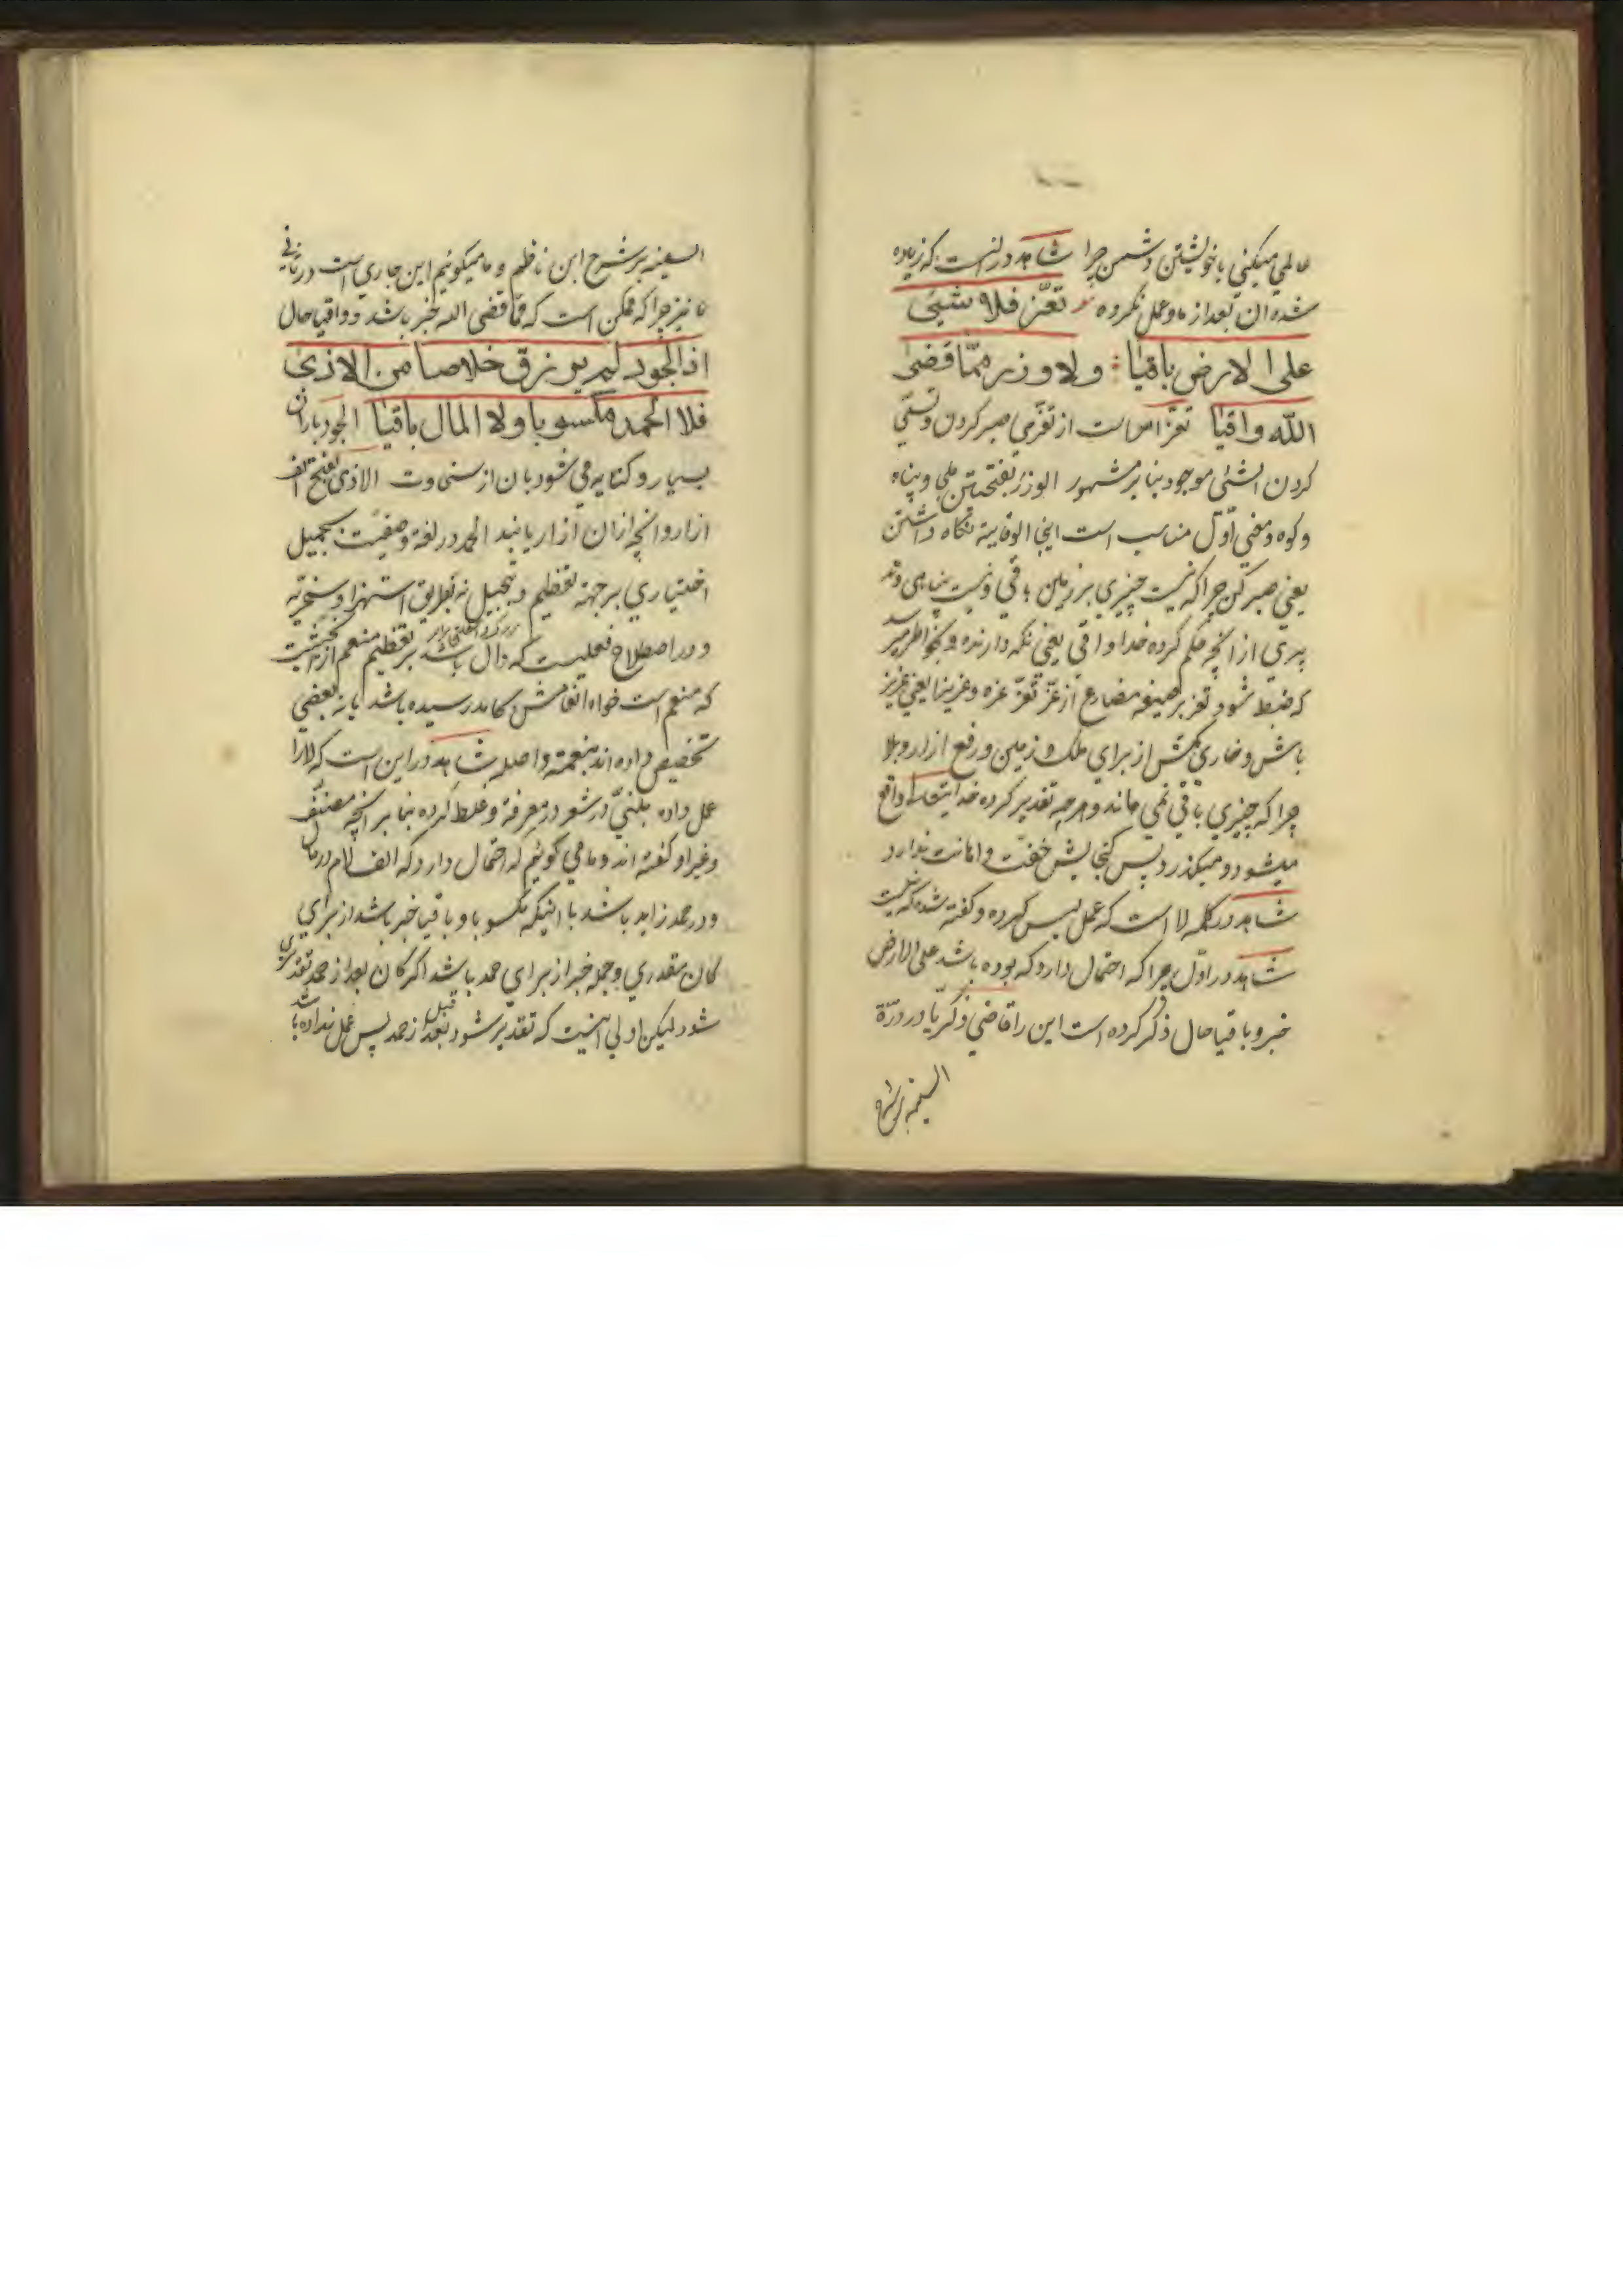 عالمي ميكني باخويشتن دشمن چرا شاهد در انست كه زياده
شده ان بعداز ما وعمل نكرده تعزّ فلا شيئ
على الارض باقيا ولا وزر ممّا قضى
اللّه واقيا تعزّ امر است از تعزّي صبر كردن وتسلّي
كردن الشئى موجود بنا بر مشهور الوزر بفتحتين ملجأ وپناه
وكوه ومعنى اوّل مناسب است اينجا الوقاية نكاه داشتن
يعني صبر كن چراكه نيست چيزي بر زمين باقي ونيست پناهي
از انچه حكم كرده خدا واقي يعني نكه دارنده وبخواطر ميرسد
كه ضبط شود تعزّ بر صيغه مضارع از عزّ تعزّ عزه وعزيزا يعني عزيز
باش وخاري مكش از براي ملك وزمين ورفع ازار وبلا
چراكه چيزي باقي نمي ماند وهرچه تقدير كرده خدايتعالى واقع
ميشود وميكذرد پس كنجايش خفّت واهانت ندارد
شاهد در كلمه لا است كه عمل ليس كرده وكفته شده كه نيست
شاهد در اوّل چراكه احتمال دارد كه بوده باشد على الارض
خبر وباقيا حال ذكر كرده است اين را قاضي زكريا در درّة
السنيه بر شرح
السنيه بر شرح ابن ناظم وما ميكوئيم اين جاري است در ثاني
نيز چراكه ممكن است كه ممّا قضى الله خبر باشد وواقيا حال
اذا الجود لم يرزق خلاصا من الاذى
فلا الحمد مكسوبا ولا المال باقيا الجود باران
بسيار وكنايه مي شود بان از سخاوت الاذى بفتح الف
ازار وانچه ازان ازار يابند الحمد در لغة وصفيست بجميل
اختياري بر جهة تعظيم وتبجيل نه بطريق استهزا وسخريّه
ودر اصطلاح فعليست كه دال باشد بر تعظيم منعم از اين حيثيت
كه منعم است خواه انعامش بحامد رسيده باشد يا نه بعضي
تخصيص داده اند بنعمة واصله شاهد در اين است كه لا را
عمل داده متنبّي در شعر در معرفة وغلط كرده بنا بر انچه مصنّف
وغير او كفته اند وما مي كوئيم كه احتمال دارد كه الف لام در مال
ودر حمد زايد باشد با اينكه مكسوبا وباقيا خبر باشد از براي
كان مقدري وجمله خبر از براي حمد باشد اكر كان بعد از حمد تقدير
شود ليكن اولي اينست كه تقدير شود قبل از حمد پس عمل نداده باشد